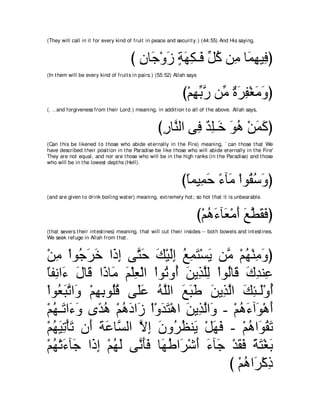 (They will call in it for every kind of fruit in peace and security.) (44:55) And His saying,
( فِيهِمَا مِن كُلِّ فَـكِهَةٍ زَوْجَانِ )
(In them will be every kind of fruits in pairs.) (55:52) Allah says
(وَمَغْفِرَةٌ مِّن رَّبِّهِمْ)
(. ..and forgiveness from their Lord;) meaning, in addition to all of the above. Allah says,
(كَمَنْ هُوَ خَـلِدٌ فِى النَّارِ)
(Can this be likened to those who abide eternally in the Fire) meaning, `can those that We
have described their position in the Paradise be like those who will abide eternally in the Fire'
They are not equal, and nor are those who will be in the high ranks (in the Paradise) and those
who will be in the lowest depths (Hell).
(وَسُقُواْ مَآءً حَمِيماً)
(and are given to drink boiling water) meaning, extremely hot; so hot that it is unbearable.
(فَقَطَّعَ أَمْعَآءَهُمْ)
(that severs their intestines) meaning, that will cut their insides -- both bowels and intestines.
We seek refuge in Allah from that.
(وَمِنْهُمْ مَّن يَسْتَمِعُ إِلَيْكَ حَتَّى إِذَا خَرَجُواْ مِنْ
عِندِكَ قَالُواْ لِلَّذِينَ أُوتُواْ الْعِلْمَ مَاذَا قَالَ ءَانِفاً
أُوْلَـئِكَ الَّذِينَ طَبَعَ اللَّهُ عَلَى قُلُوبِهِمْ وَاتَّبَعُواْ
أَهْوَآءَهُمْ - وَالَّذِينَ اهْتَدَوْاْ زَادَهُمْ هُدًى وَءَاتَـهُمْ
تَقُوَاهُمْ - فَهَلْ يَنظُرُونَ إِلاَّ السَّاعَةَ أَن تَأْتِيَهُمْ
بَغْتَةً فَقَدْ جَآءَ أَشْرَاطُهَا فَأَنَّى لَهُمْ إِذَا جَآءَتْهُمْ
ذِكْرَاهُمْ )